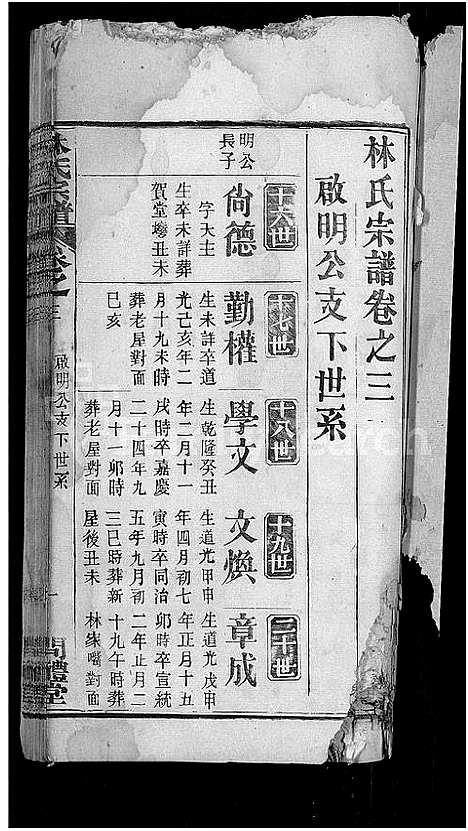 林氏宗譜卷之三
啟明公支下世系
十六世
十七世
十八世
十九世
二十世
明公
長子
尚德
字天主
生卒未詳葬
賀堂塝丑未
勤權
生未詳卒道
光己亥年二
月十九未時
葬老屋對面
巳亥
學文
生乾隆癸丑
年二月十一
戌時卒嘉慶
二十四年九
月十一卯時
葬老屋對面
文煥
生道光甲申
年四月初七
寅時卒同治
五年九月初
三巳時葬新
屋後丑未
章成
生道光戊申
年正月十五
卯時卒宣統
二年正月二
十九午時葬
林家嘴對面
林氏宗譜
卷之三
啟明公支下世系
一
問禮堂